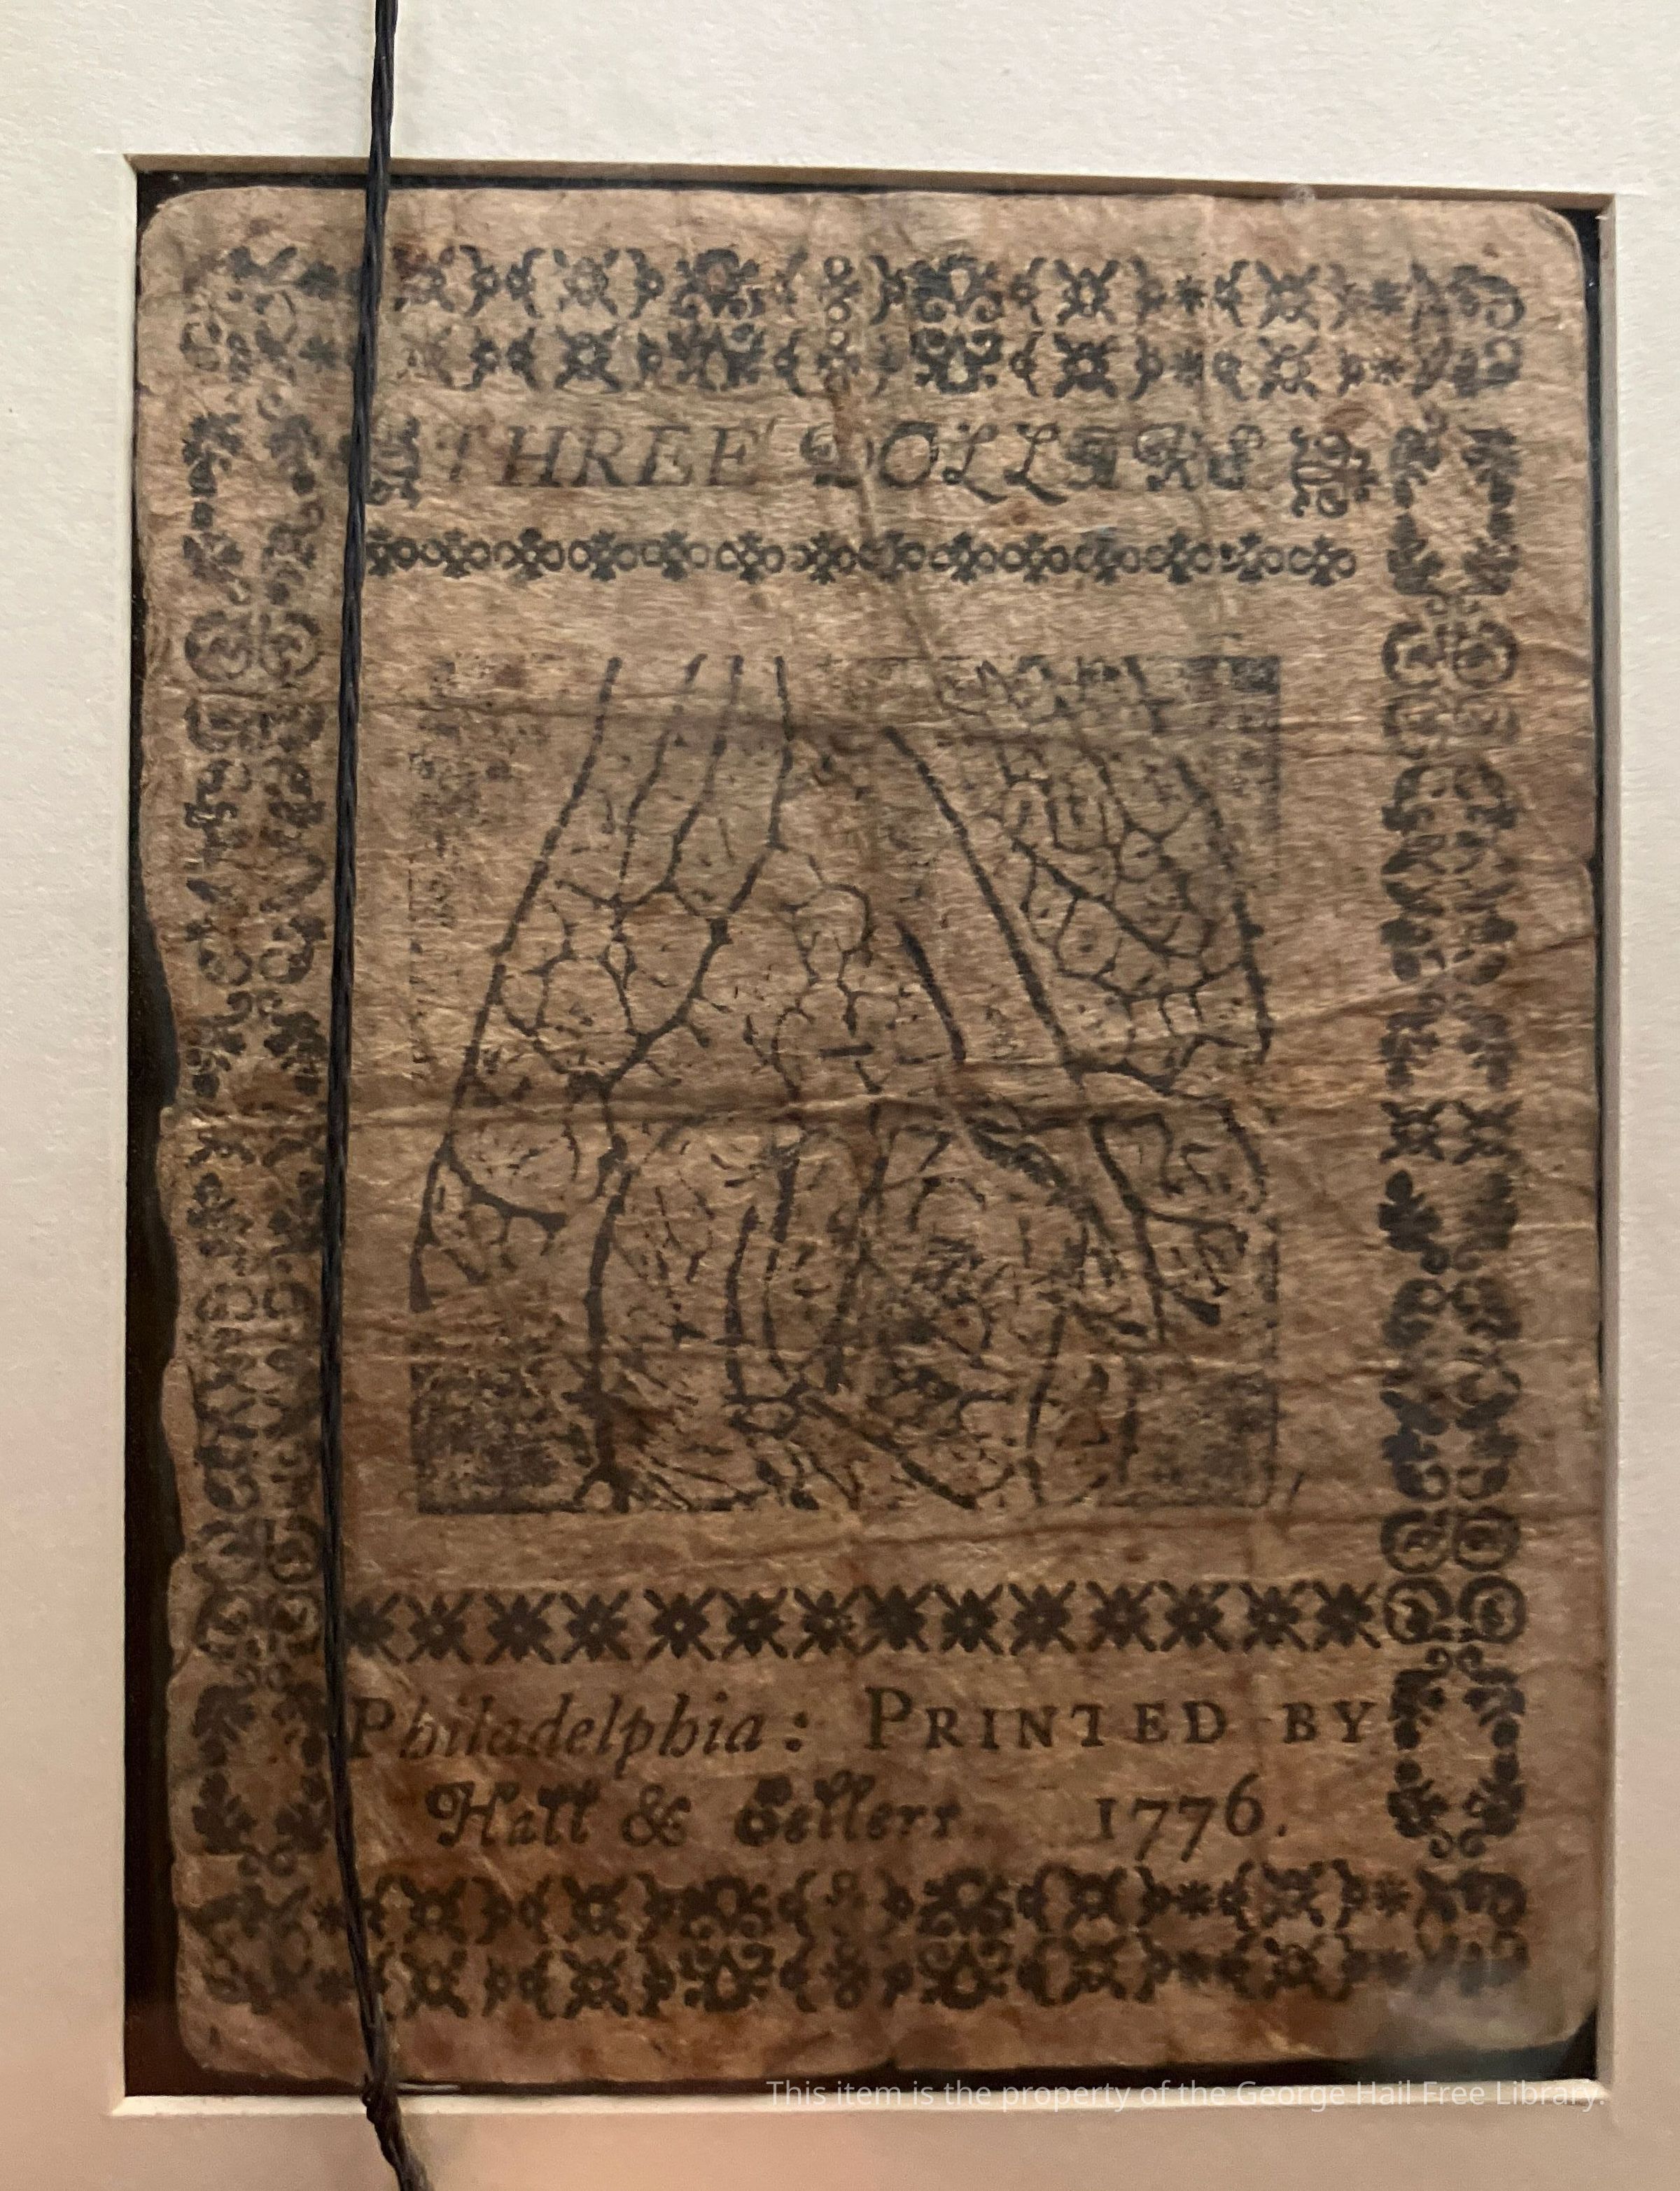 THREE DOLLARS
Philadelphia: PRINTED BY
Hall & Sellers. 1776.
This item is the property of the George Hail Free Library.